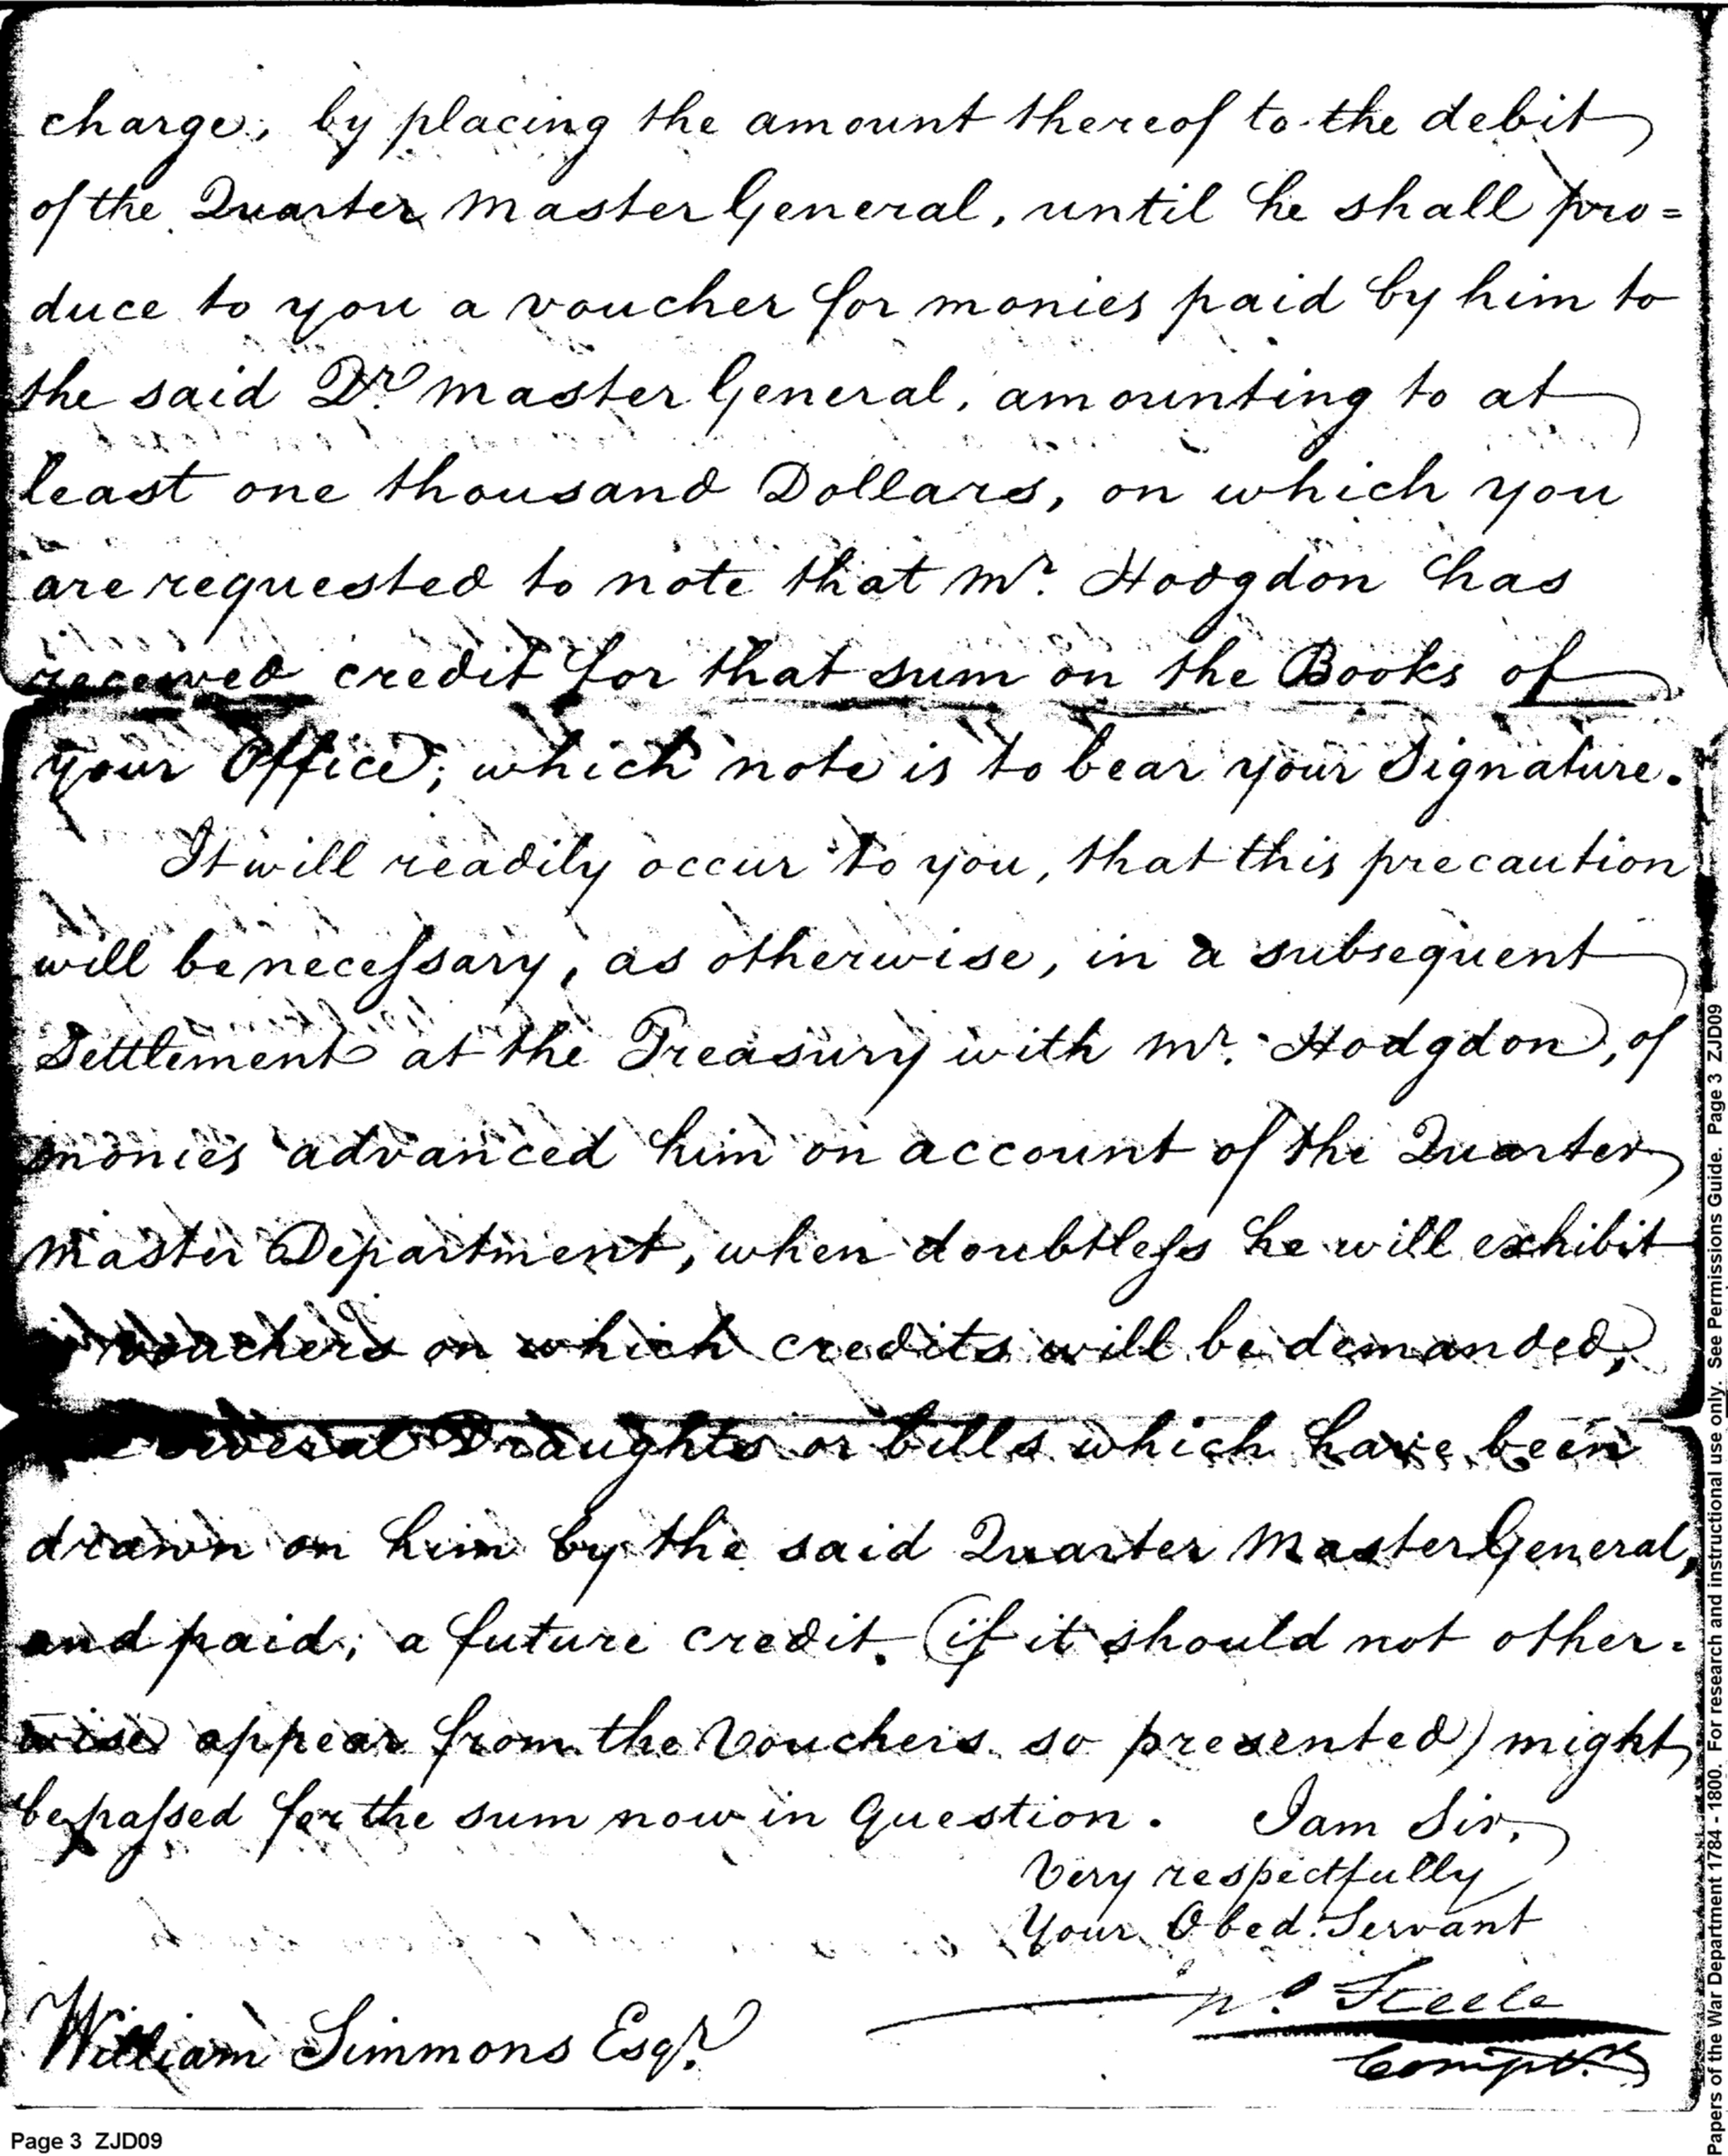 charge, by placing the amount thereof to the debit
of the Quarter Master General, until he shall pro=
duce to you a voucher for monies paid by him to
the said Qr. Master General, amounting to at
least one thousand Dollars, on which you
are requested to note that Mr. Hodgdon has
received credit for that sum on the Books of
your Office; which note is to bear your Signature.
It will readily occur to you, that this precaution
will be necessary, as otherwise, in a subsequent
Settlement at the Treasury with Mr. Hodgdon, of
monies advanced him on account of the Quarter
Master Department, when doubtless he will exhibit
vouchers on which credits will be demanded,
several Draughts or bills which have been
drawn on him by the said Quarter Master General,
and paid; a future credit (if it should not other=
wise appear from the Vouchers so presented) might
be passed for the sum now in Question. I am Sir,
Very respectfully
Your Obed. Servant
Steele
Comptr.
William Simmons Esqr.
Page 3 ZJD09
Papers of the War Department 1784 - 1800. For research and instructional use only. See Permissions Guide. Page 3 ZJD09